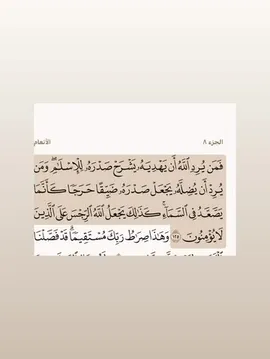 الجزء ٨
الأنعام
فَمَن يُرِدِ ٱللَّهُ أَن يَهْدِيَهُۥ يَشْرَحْ صَدْرَهُۥ لِلْإِسْلَٰمِ ۖ وَمَن
يُرِدْ أَن يُضِلَّهُۥ يَجْعَلْ صَدْرَهُۥ ضَيِّقًا حَرَجًا كَأَنَّمَا
يَصَّعَّدُ فِى ٱلسَّمَآءِ ۚ كَذَٰلِكَ يَجْعَلُ ٱللَّهُ ٱلرِّجْسَ عَلَى ٱلَّذِينَ
لَا يُؤْمِنُونَ ١٢٥ وَهَٰذَا صِرَٰطُ رَبِّكَ مُسْتَقِيمًا ۗ قَدْ فَصَّلْنَا